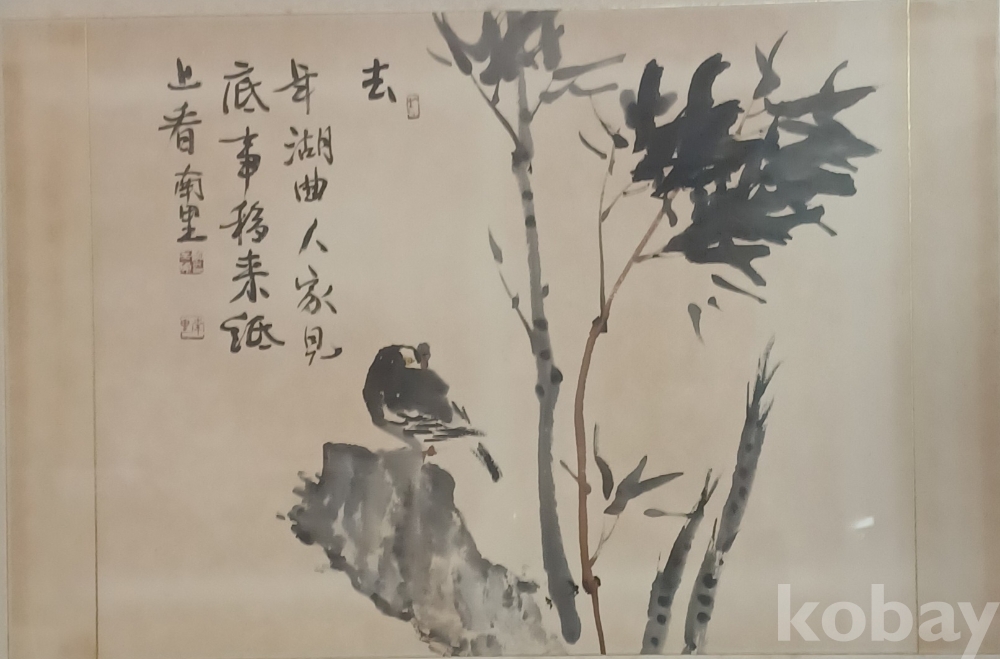 去
年湖曲人家見
底事移来紙
上看 南里
kobay